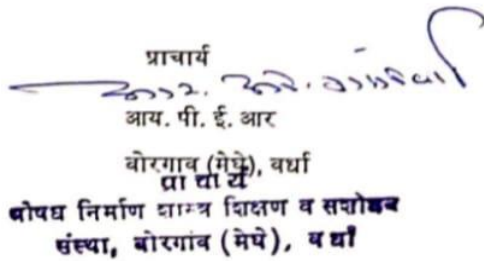 प्राचार्य
आय. पी. ई. आर
बोरगाव (मेघे), वर्धा
प्राचार्य
औषध निर्माण शास्त्र शिक्षण व संशोधन
संस्था, बोरगांव (मेघे), वर्धा